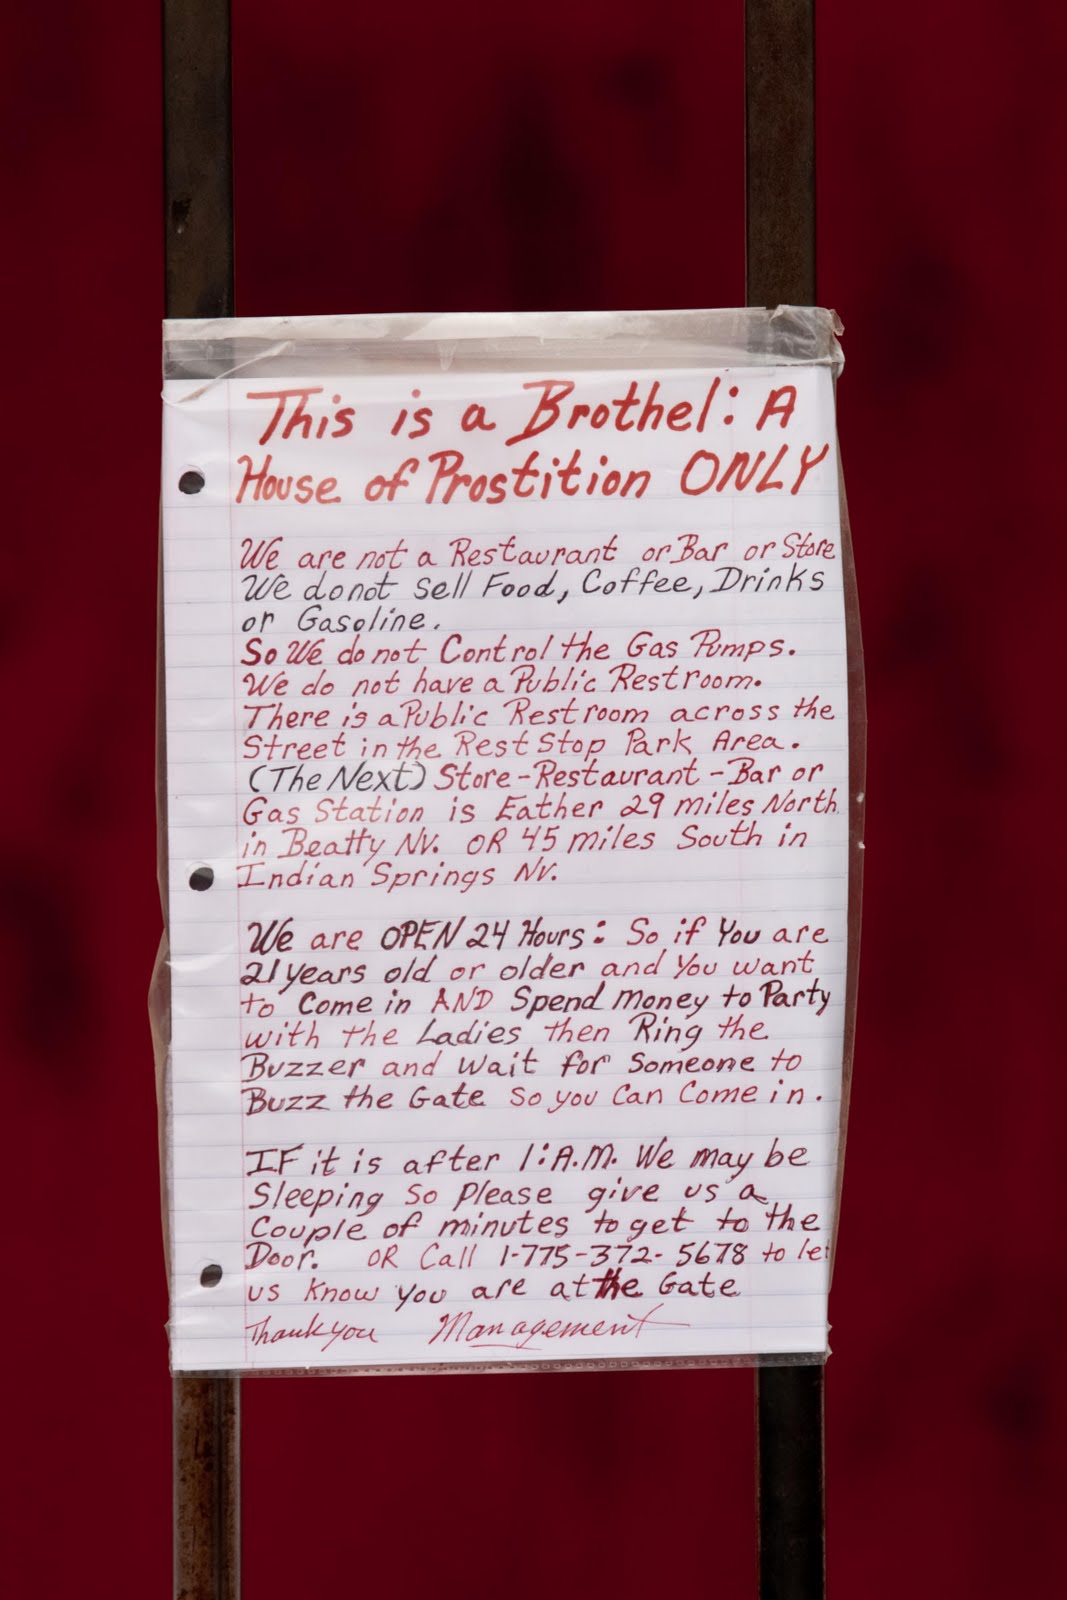 This is a Brothel: A
House of Prostition ONLY
We are not a Restaurant or Bar or Store
We do not Sell Food, Coffee, Drinks
or Gasoline.
So We do not Control the Gas Pumps.
We do not have a Public Restroom.
There is a Public Restroom across the
Street in the Rest Stop Park Area.
(The Next) Store-Restaurant-Bar or
Gas Station is Eather 29 miles North
in Beatty NV. OR 45 miles South in
Indian Springs NV.
We are OPEN 24 Hours: So if You are
21 years old or older and You want
to Come in AND Spend money to Party
with the Ladies then Ring the
Buzzer and wait for Someone to
Buzz the Gate So you Can Come in.
IF it is after 1:A.M. We may be
Sleeping So Please give us a
Couple of minutes to get to the
Door. OR Call 1-775-372-5678 to let
us Know you are at the Gate
Thank you Management